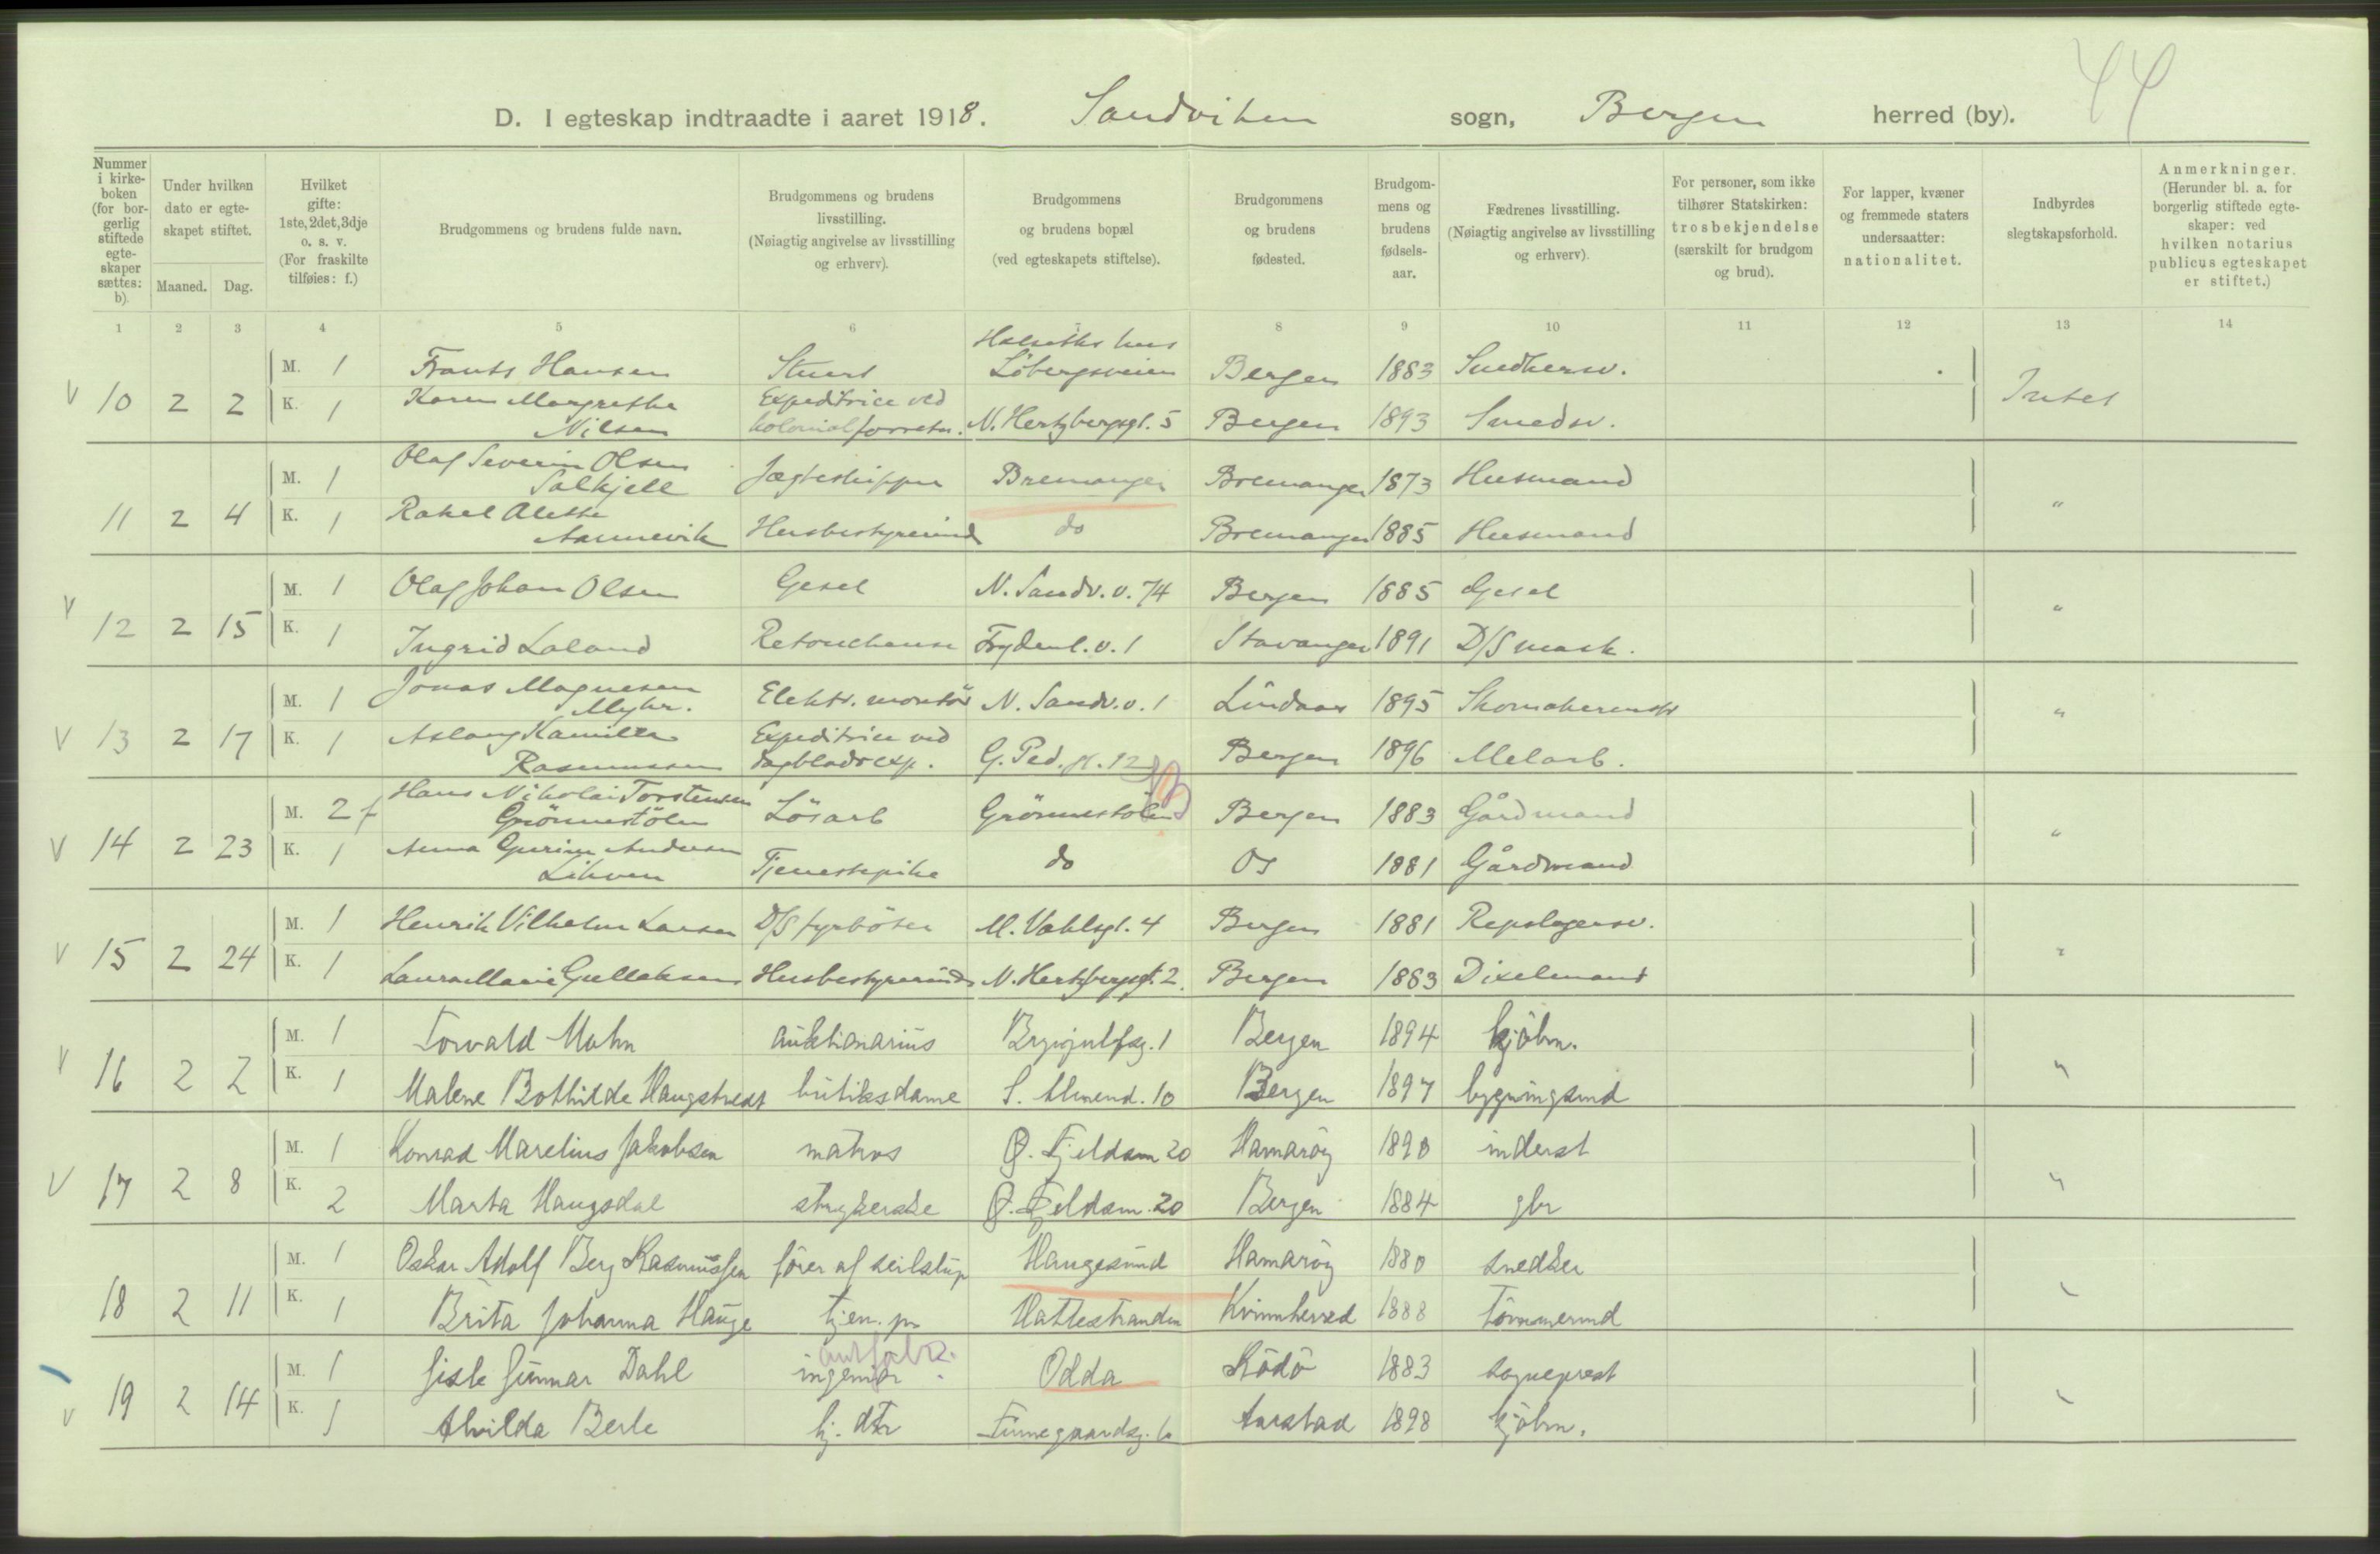 44
D. I egteskap indtraadte i aaret 1918. Sandviken sogn, Bergen herred (by).
Nummer i kirkeboken (for borgerlig stiftede egteskaper sættes: b).
Under hvilken dato er egteskapet stiftet.
Maaned. Dag.
Hvilket gifte: 1ste, 2det, 3dje o. s. v. (For fraskilte tilføies: f.)
Brudgommens og brudens fulde navn.
Brudgommens og brudens livsstilling. (Nøiagtig angivelse av livsstilling og erhverv).
Brudgommens og brudens bopæl (ved egteskapets stiftelse).
Brudgommens og brudens fødested.
Brudgommens og brudens fødselsaar.
Fædrenes livsstilling. (Nøiagtig angivelse av livsstilling og erhverv).
For personer, som ikke tilhører Statskirken: trosbekjendelse (særskilt for brudgom og brud).
For lapper, kvæner og fremmede staters undersaatter: nationalitet.
Indbyrdes slegtskapsforhold.
Anmerkninger. (Herunder bl. a. for borgerlig stiftede egteskaper: ved hvilken notarius publicus egteskapet er stiftet.)
1 2 3 4 5 6 7 8 9 10 11 12 13 14
M. 1 Frants Hansen Stuert Løbergsveien Bergen 1883 Snedkersv.
V 10 2 2 K. 1 Karen Margrethe Nilsen Expeditrice ved kolonialforretn. N. Hertzbergsgt. 5 Bergen 1893 Smedsv. Intet
M. 1 Olaf Severin Olsen Salkjell Jægteskipper Bremanger Bremanger 1873 Husmand
11 2 4 K. 1 Rakel Alette Husbestyrerinde do Bremanger 1885 Husmand "
M. 1 Olaf Johan Olsen Gesel N. Sandv. v. 74 Bergen 1885 Gesel
V 12 2 15 K. 1 Ingrid Laland Retoucheuse Frydenl. v. 1 Stavanger 1891 D/S mask. "
M. 1 Jonas Magnesen Myhr. Elektr. montör N. Sandv. v. 1 Lindaas 1895 Skomakermstr
V 13 2 17 K. 1 Aslaug Kamilla Rasmussen Expeditrice ved dagbladsexp. G. Ped. gt. 12 Bergen 1896 Melarb. "
M. 2 f Hans Nikolai Torstensen Grönnestölen Lösarb Grönnestölen Bergen 1883 Gårdmand
V 14 2 23 K. 1 Anna Gurine Andersen Tjenestepike do Os 1881 Gårdmand "
M. 1 Henrik Vilhelm Larsen D/S fyrböter M. Vahlsgt. 4 Bergen 1881 Repslagersv.
V 15 2 24 K. 1 Laura Marie Gullaksen Husbestyrerinde N. Hertzbergsgt. 2. Bergen 1883 Dixelmand "
M. 1 Torvald Mohn auktionarius Brynjulfsg. 1 Bergen 1894 kjøbm.
V 16 2 2 K. 1 Malene Bothilde Haugstvedt butiksdame S. Almend. 10 Bergen 1897 bygningsmd "
M. 1 Konrad Marelius Jakobsen matros Ø. Fjeldsm 20 Hamarøy 1890 inderst
V 17 2 8 K. 2 Marta Haugsdal strykerske Ø. Fjeldsm. 20 Bergen 1884 gbr "
M. 1 Oskar Adolf Berg Rasmussen fører af seilskip Haugesund Hamarøy 1880 snedker
18 2 11 K. 1 Brita Johanna Hauge tjen. p. Hattestranden Kvinnherred 1888 Tømmermd "
M. 1 Gisle Gunnar Dahl ingeniør Odda Rødø 1883 sogneprest
V 19 2 14 K. 1 Alvilda Berle hj. dtr Finnegaardsg. Aarstad 1898 kjøbm. "